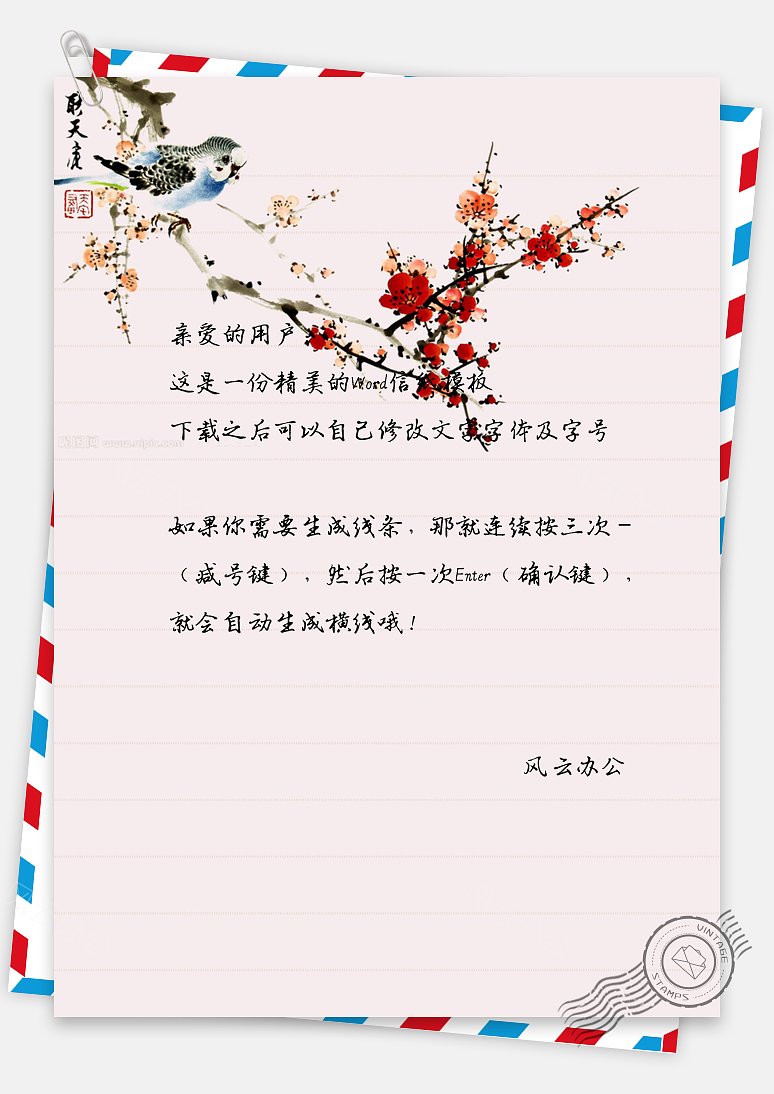 亲爱的用户:
这是一份精美的Word信纸模板
下载之后可以自己修改文字字体及字号
昵图网 www.nipic.com
如果你需要生成线条，那就连续按三次－
（减号键），然后按一次Enter（确认键），
就会自动生成横线哦！
风云办公
VINTAGE
STAMPS